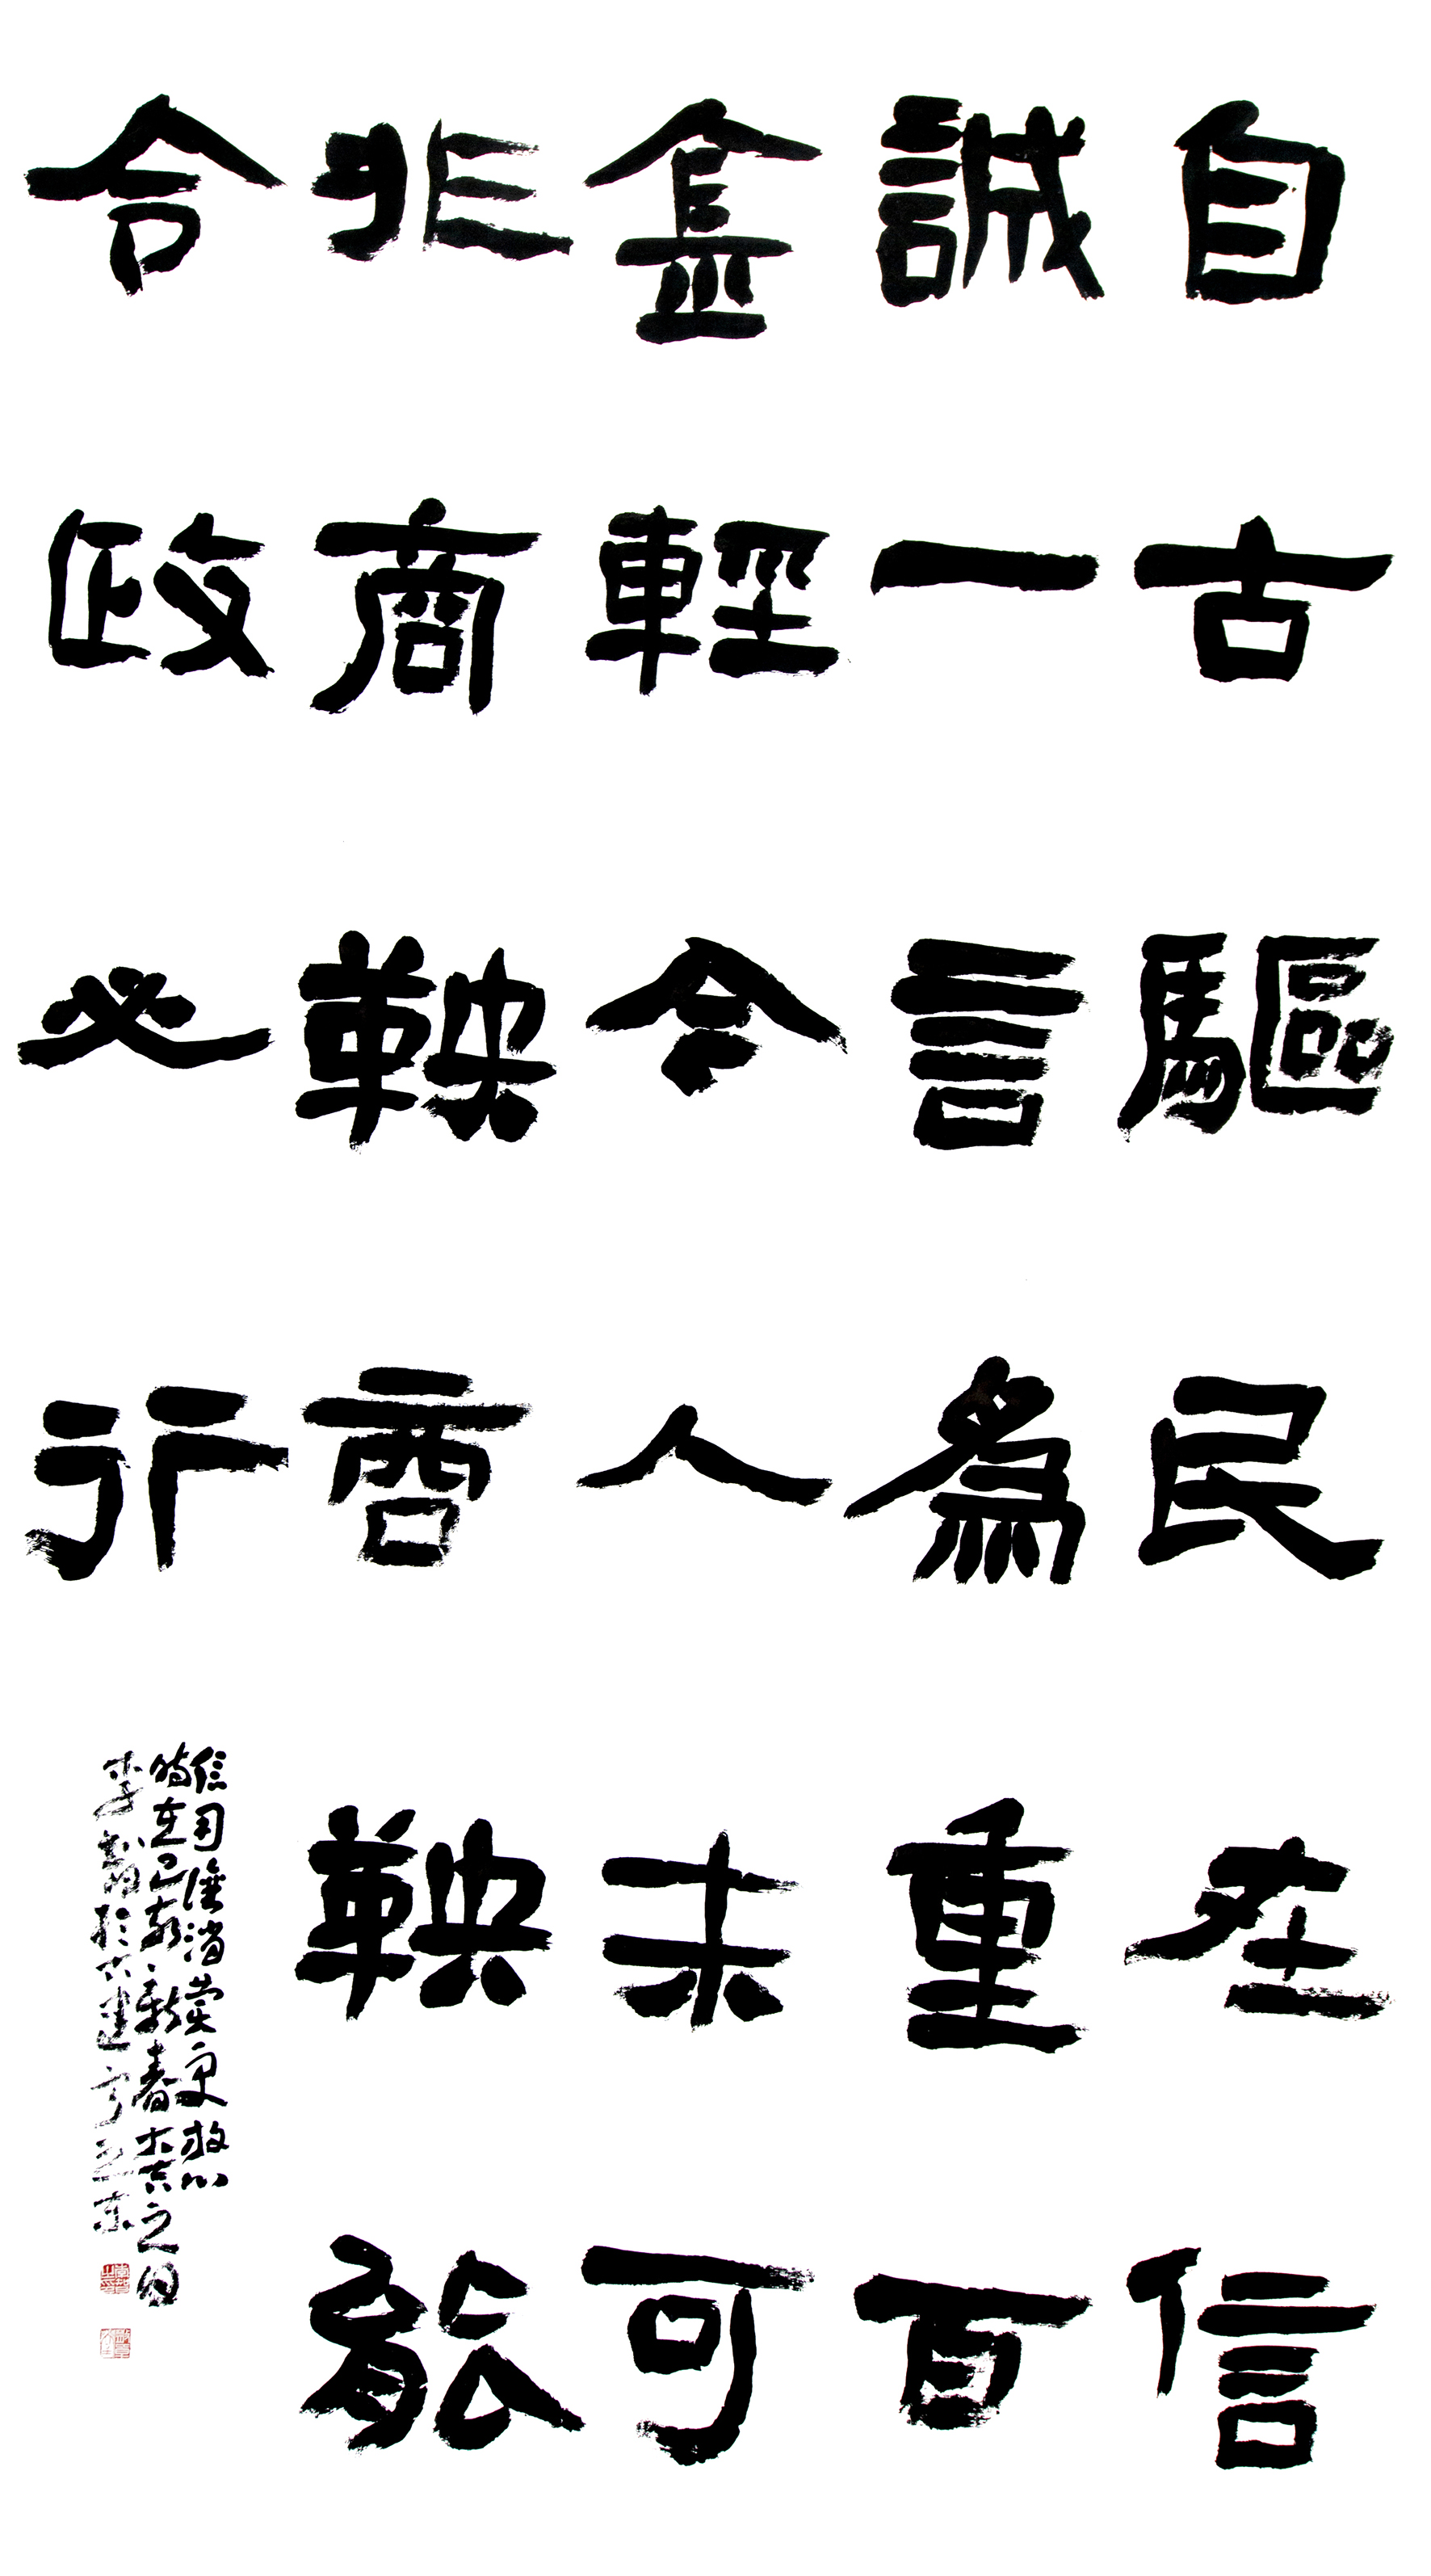 自古驅民在信
誠一言爲重百
金輕今人未可
非商鞅商鞅能
令政必行
信用
時在己亥新春大吉之日
李